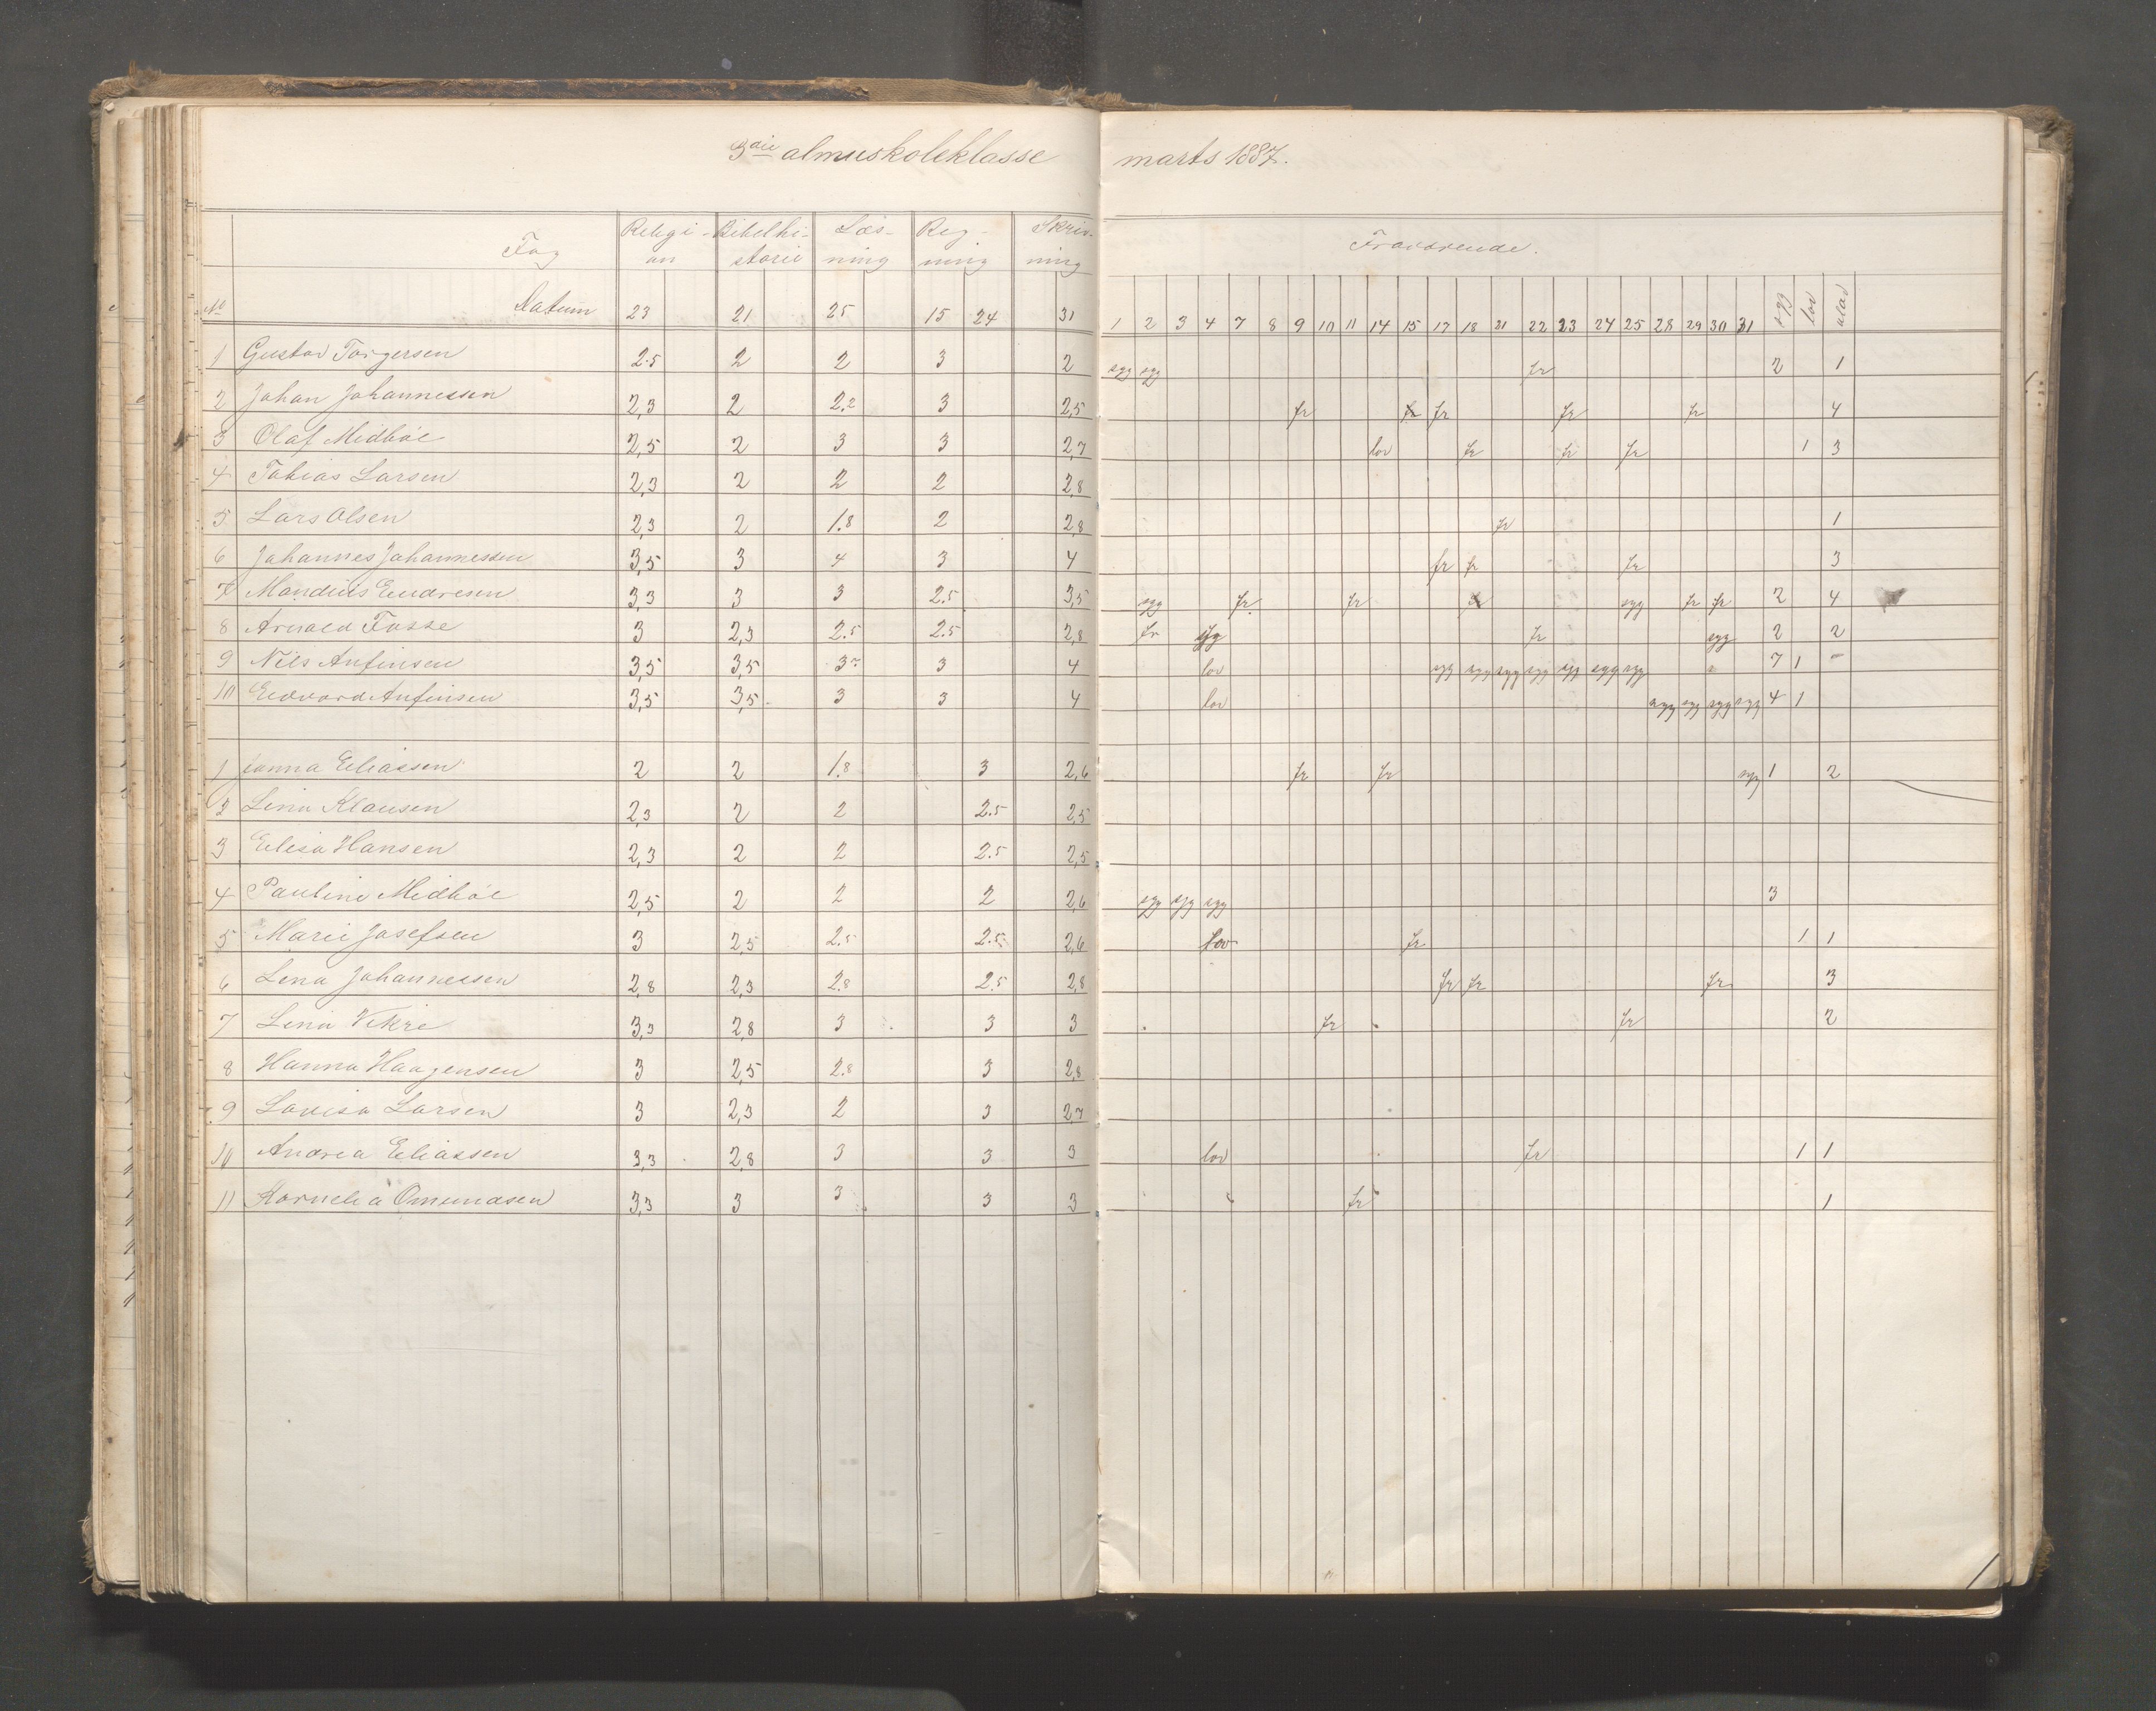 3die almueskoleklasse marts 1887.
Fag Religi- on Bibelhi- storie Læs- ning Reg- ning Skriv- ning Fraværende.
No Datum 23 21 25 15 24 31 1 2 3 4 7 8 9 10 11 14 15 17 18 21 22 23 24 25 28 29 30 31 syg lov
1 Gustav Torgersen 2.5 2 2 3 2 syg syg fr 2 1
2 Johan Johannessen 2,3 2 2.2 3 2,5 fr fr fr fr fr 4
3 Olaf Midbøe 2,5 2 3 3 2,7 lov fr fr fr 1 3
4 Tobias Larsen 2,3 2 2 2 2,8
5 Lars Olsen 2,3 2 1.8 2 2,8 fr 1
6 Johannes Johannessen 3,5 3 4 3 4 fr fr fr 3
7 Mandius Endresen 3,3 3 3 2.5 3,5 syg fr fr fr syg fr fr 2 4
8 Arnald Fosse 3 2,3 2.5 2.5 2,8 fr syg fr syg 2 2
9 Nils Anfinsen 3,5 3,5 3 3 4 lov syg syg syg syg syg syg syg 7 1 -
10 Edvard Anfinsen 3,5 3,5 3 3 4 lov syg syg syg syg 4 1
1 Janna Eliassen 2 2 1.8 3 2,6 fr fr syg 1 2
2 Lina Klausen 2,3 2 2 2.5 2,5
3 Elisa Hansen 2,3 2 2 2.5 2,5
4 Pauline Midbøe 2,5 2 2 2 2,6 syg syg syg 3
5 Marie Josefsen 3 2,5 2.5 2.5 2,6 lov fr 1 1
6 Lena Johannessen 2,8 2,3 2.8 2.5 2,8 fr fr fr 3
7 Lina Vikre 3,3 2,8 3 3 3 fr fr 2
8 Hanna Haagensen 3 2,5 2.8 3 2,8
9 Lovisa Larsen 3 2,3 2 3 2,7
10 Andrea Eliassen 3,3 2,8 3 3 3 lov fr 1 1
11 Kornelia Omundsen 3,3 3 3 3 3 fr 1